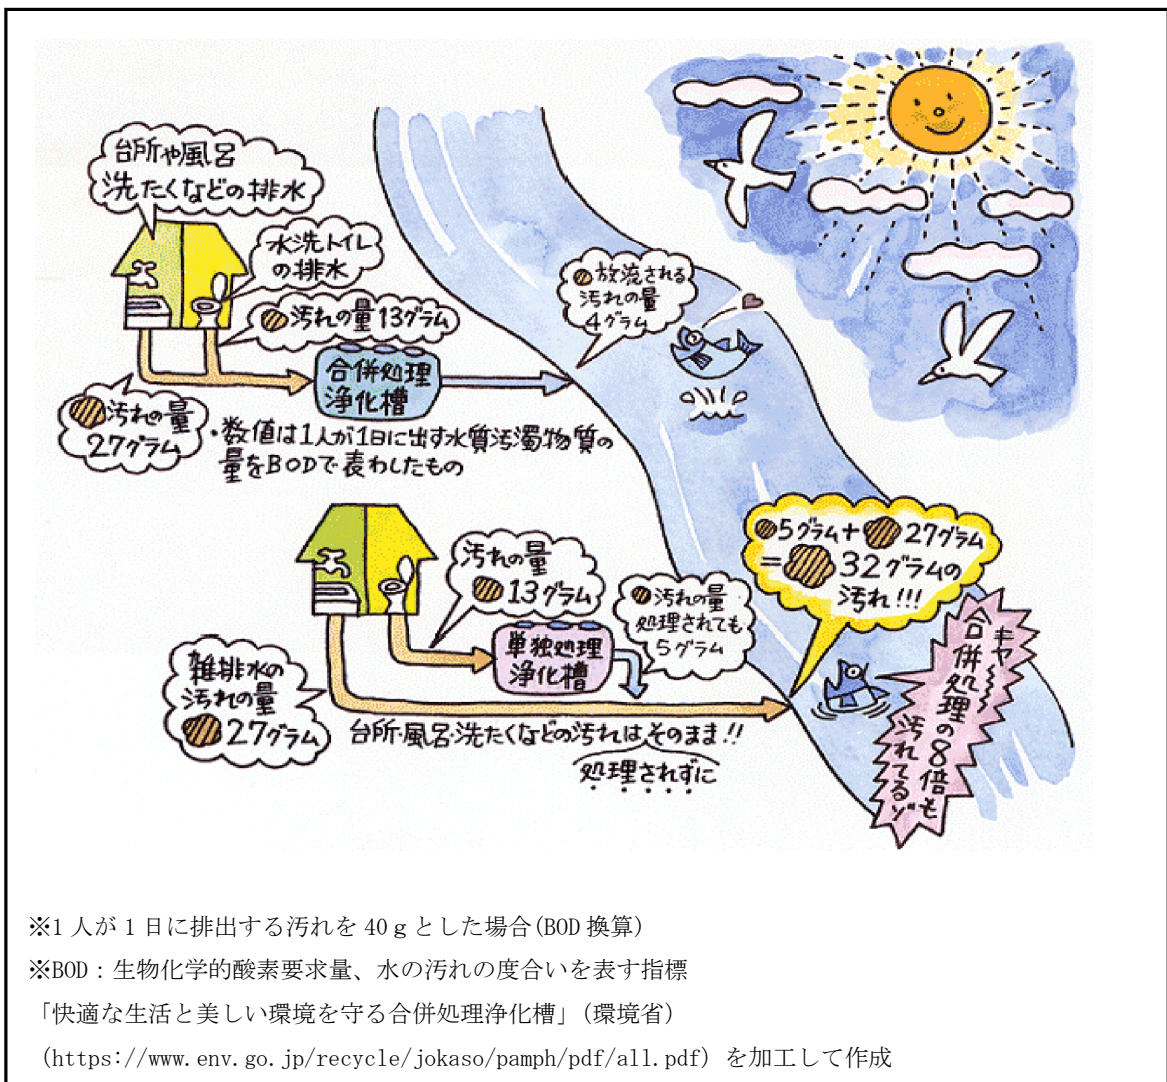 台所や風呂
洗たくなどの排水
水洗トイレ
の排水
汚れの量13グラム
合併処理
浄化槽
汚れの量
27グラム
放流される
汚れの量
4グラム
・数値は1人が1日に出す水質汚濁物質の
量をBODで表わしたもの
汚れの量
13グラム
単独処理
浄化槽
汚れの量
処理されても
5グラム
雑排水の
汚れの量
27グラム
台所・風呂・洗たくなどの汚れはそのまま!!
処理されずに
5グラム+27グラム
=32グラムの
汚れ!!!
キャーーッ
合併処理の8倍も
汚れてるゾ
※1人が1日に排出する汚れを40gとした場合(BOD換算)
※BOD:生物化学的酸素要求量、水の汚れの度合いを表す指標
「快適な生活と美しい環境を守る合併処理浄化槽」(環境省)
(https://www.env.go.jp/recycle/jokaso/pamph/pdf/all.pdf) を加工して作成